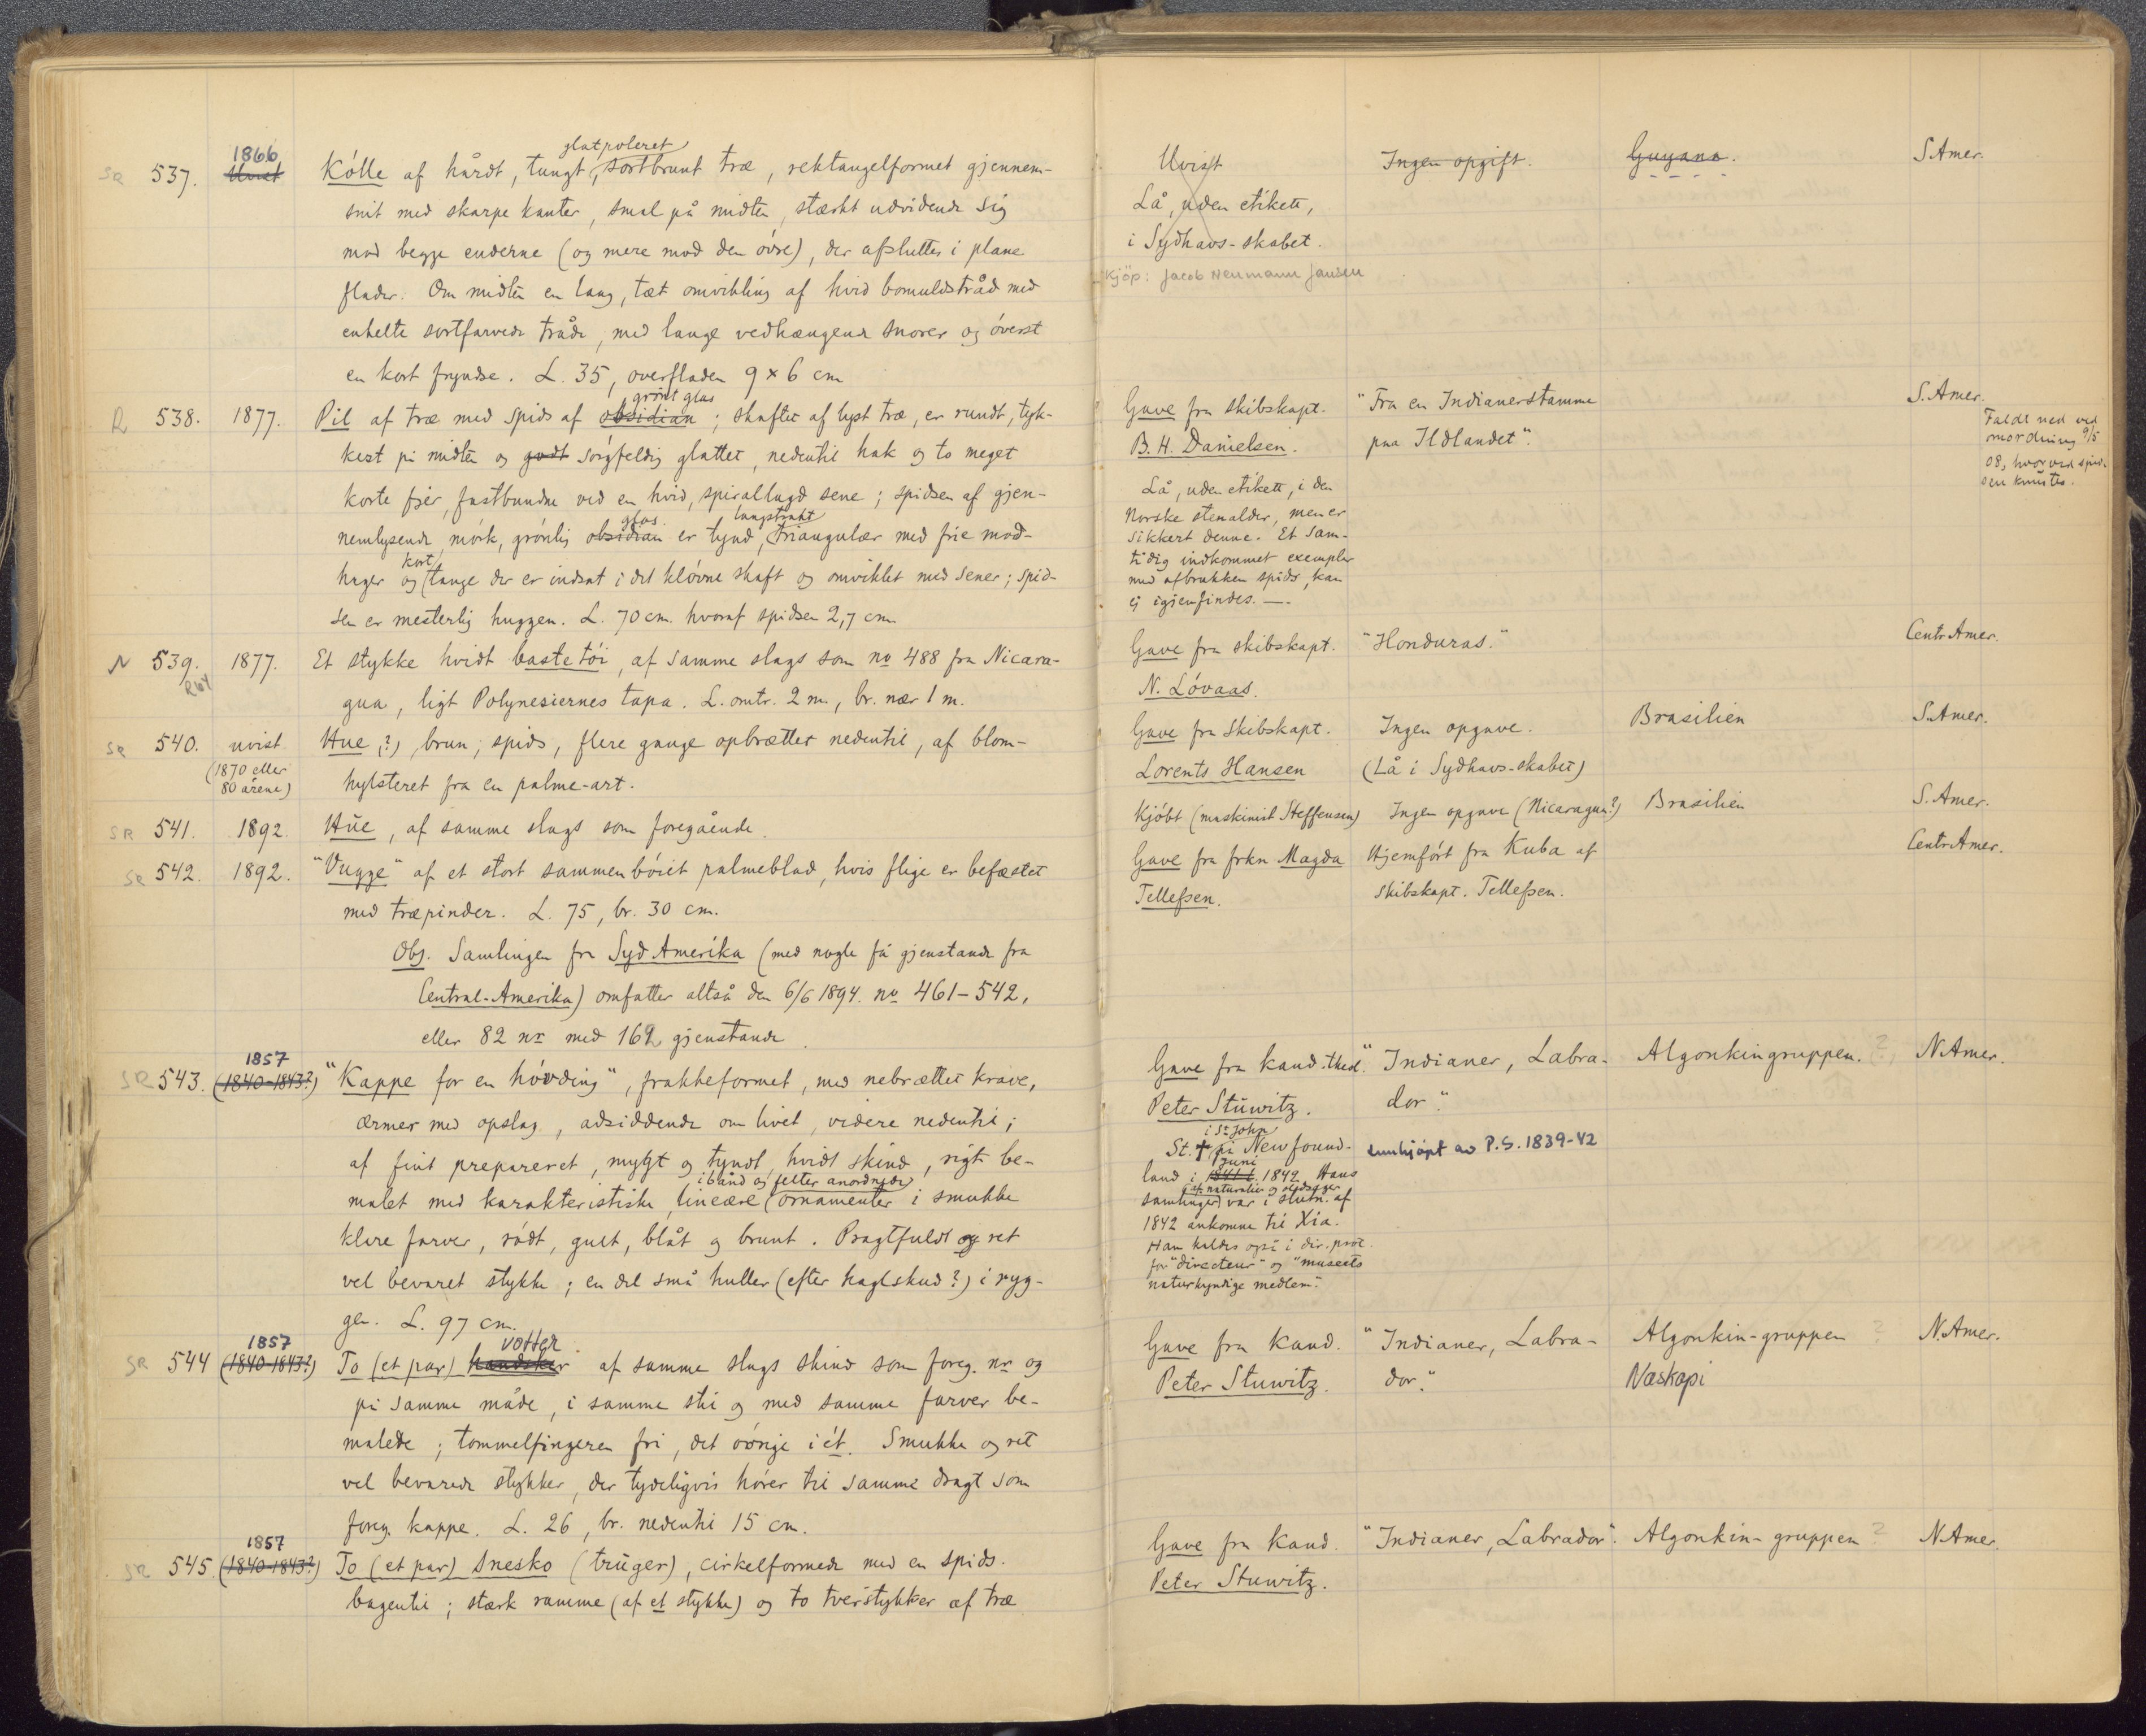 1866 glatpoleret
SR 537. Uvist Kólle af hårdt, tungt, sortbrunt træ, rektangelformet gjennem-
snit med skarpe kanter, smal på midten, stærkt udvidende sig
mod begge enderne (og mere mod den óvre), der afsluttes i plane
flader. Om midten en lang, tæt omvikling af hvid bomuldstråd med
enkelte sortfarvede tråde, med lange vedhængende snorer og óverst
en kort fryndse. L. 35, overfladen 9 x 6 cm
grönt glas
R 538. 1877. Pil af træ med spids af obsidian; skaftet af lyst træ, er rundt, tyk-
kest på midten og godt sórgfeldig glattet, nedentil hak og to meget
korte fjer, fastbundne ved en hvid, spirallagd sene; spidsen af gjen-
glas. langstrakt
nemlysende, mórk, grónlig obsidian er tynd, triangulær med frie mod-
kort
hager og tange der er indsat i det klóvne skaft og omviklet med sener; spid-
sen er mesterlig huggen. L. 70 cm. hvoraf spidsen 2,7 cm
N 539. 1877. Et stykke hvidt bastetói, af samme slags som no 488 fra Nicara-
gua, ligt Polynesiernes tapa. L. omtr. 2 m., br. nær 1 m.
SR 540. uvist Hue (?), brun, spids, flere gange opbrættet nedentil, af blom-
(1870 eller
80 årene) hylsteret fra en palme-art.
SR 541. 1892. Hue, af samme slags som foregående.
SR 542. 1892. "Vugge" af et stort sammenbóiet palmeblad, hvis flige er befæstet
med træpinder. L. 75, br. 30 cm.
Obs. Samlingen fra Syd Amerika (med nogle få gjenstande fra
Central-Amerika) omfatter altså den 6/6 1894. no 461-542,
eller 82 nr med 162 gjenstande.
1857
SR 543. (1840-1843?) "Kappe for en hóvding", frakkeformet, med nebrættet krave,
ærmer med opslag, adsiddende om livet, videre nedentil;
af fint prepareret, mygt og tyndt, hvidt skind, rigt be-
i bånd og felter anordnede
malet med karakteristiske lineære ornamenter i smukke
klare farver, ródt, gult, blåt og brunt. Pragtfuldt og ret
vel bevaret stykke; en del små huller (efter haglskud?) i ryg-
gen. L. 97 cm.
1857 votter
SR 544 (1840-1843?) To (et par) handsker af samme slags skind som foreg. nr og
på samme måde, i samme stil og med samme farver be-
malede; tommelfingeren fri, det óvrige i ét. Smukke og ret
vel bevarede stykker, der tydeligvis hórer til samme dragt som
foreg. kappe. L. 26, br. nedentil 15 cm.
1857
SR 545. (1840-1843?) To (et par) snesko (trüger), cirkelformede med en spids
bagentil; stærk ramme (af et stykke) og to tverstykker af træ
Uvist Ingen opgift. Guyana. S. Amer.
Lå, uden etikett,
i Sydhavs-skabet.
Kjöp: Jacob Neumann Jansen
Gave fra skibskapt. "Fra en Indianerstamme S. Amer.
B. H. Danielsen. paa Ildlandet".
Faldt ned ved
omordning 9/5
08, hvorved spid-
sen knustes.
Lå, uden etikett, i den
Norske stenalder, men er
sikkert denne. Et sam-
tidig indkommet exemplar
med afbrukken spids, kan
ej igjenfindes. —.
Gave fra skibskapt. "Honduras." Centr Amer.
N. Lóvaas.
Gave fra Skibskapt. Ingen opgave. Brasilien S. Amer.
Lorents Hansen (Lå i Sydhavs-skabet)
Kjóbt (maskinist Steffensen) Ingen opgave (Nicaragua?) Brasilien S. Amer.
Gave fra frkn Magda Hjemfórt fra Kuba af Centr Amer.
Tellefsen. skibskapt. Tellefsen.
Gave fra kand. theol. "Indianer, Labra- Algonkingruppen. ? N. Amer.
Peter Stüwitz. dor."
i St John
St. † på Newfound- innkjöpt av P.S. 1839-42
Juni
land i 1841 1842. Hans
af naturalier og oldsager
samlinger var i slutn. af
1842 ankomne til Xia.
Han kaldes også i dir. prot.
for "directeur" og "museets
naturkyndige medlem".
Gave fra Kand. "Indianer, Labra- Algonkin-gruppen ? N. Amer.
Peter Stuwitz. dor." Naskapi
Gave fra Kand. "Indianer, Labrador". Algonkin-gruppen ? N. Amer.
Peter Stuwitz.